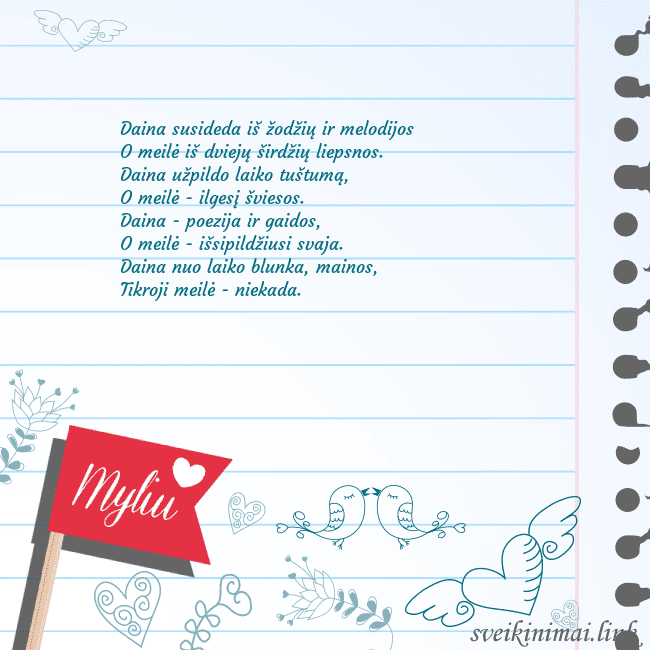 Daina susideda iš žodžių ir melodijos
O meilė iš dviejų širdžių liepsnos.
Daina užpildo laiko tuštumą,
O meilė - ilgesį šviesos.
Daina - poezija ir gaidos,
O meilė - išsipildžiusi svaja.
Daina nuo laiko blunka, mainos,
Tikroji meilė - niekada.
Myliu
sveikinimai.link